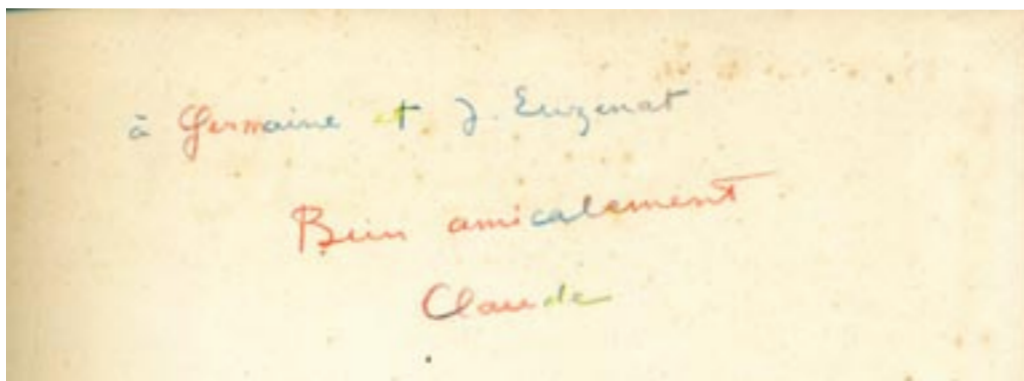 à Germaine et J. Euzenat
Bien amicalement
Claude